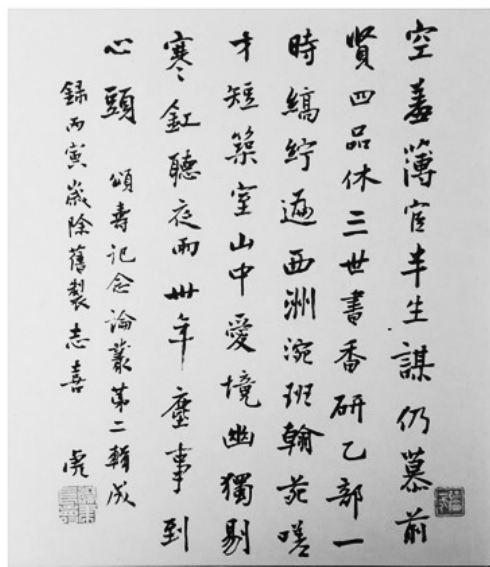 空羞薄宦半生謀仍慕前
賢四品休三世書香研乙部一
時縞紵遍西洲涴班翰苑嗟
才短築室山中愛境幽獨剔
寒釭聽夜雨卅年塵事到
心頭 頌壽記念論叢第二輯成
錄丙寅歲除舊製志喜 虎